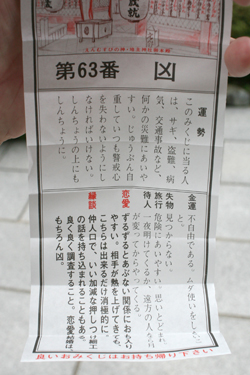 第63番 凶
運勢
このみくじに当る人
は、サギ、盗難、病
気、交通事故など、
何かの災難にあいや
すい。じゅうぶん自
重していつも警戒心
を失わないようにし
なければいけない。
しんちょうの上にも
しんちょうに。
金運 不自由である。ムダ使いをしない
失物 見つからない
旅行 危険にあいやすい。思いとどまれ
待人 一夜明けてくるか、遠方の人なら
が変ってからやってくる。
恋愛
ずるずるとあぶない関係にお入り
やすい。相手が熱を上げてきても、
こちらは出来るだけ消極的に。
縁談
仲人口で、いい加減な押しつけ細工
の話を持ち込まれることもある。
良く良く調査すること。恋愛結婚は
もちろん凶。
良いおみくじはお持ち帰り下さい